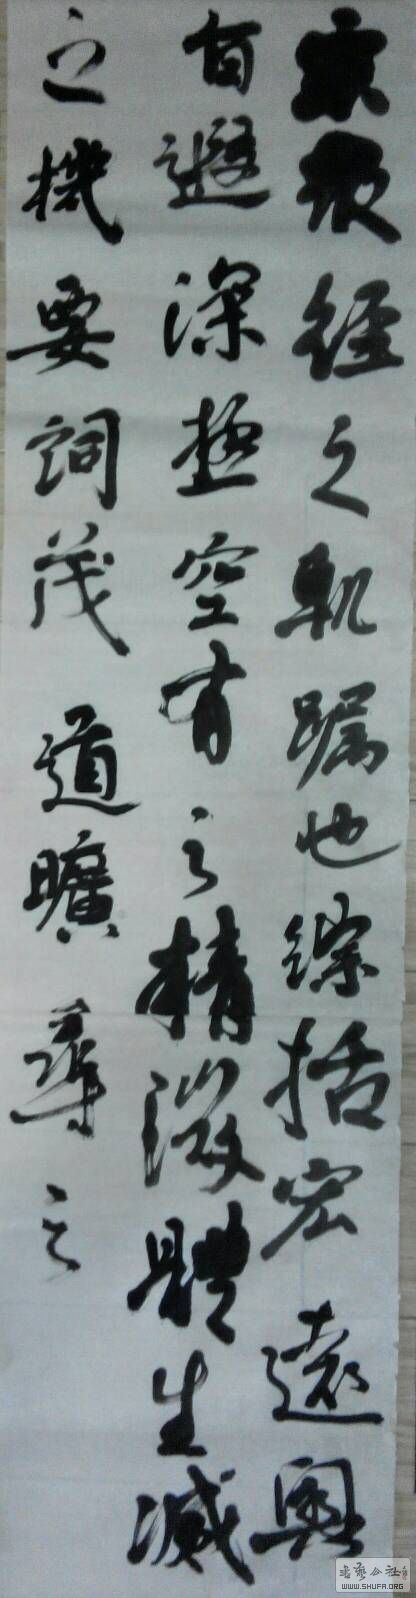 宗衆經之軌躅也綜括宏遠奧
旨遐深極空有之精微體生滅
之機要詞茂道曠尋之
書藝公社
WWW.SHUFA.ORG